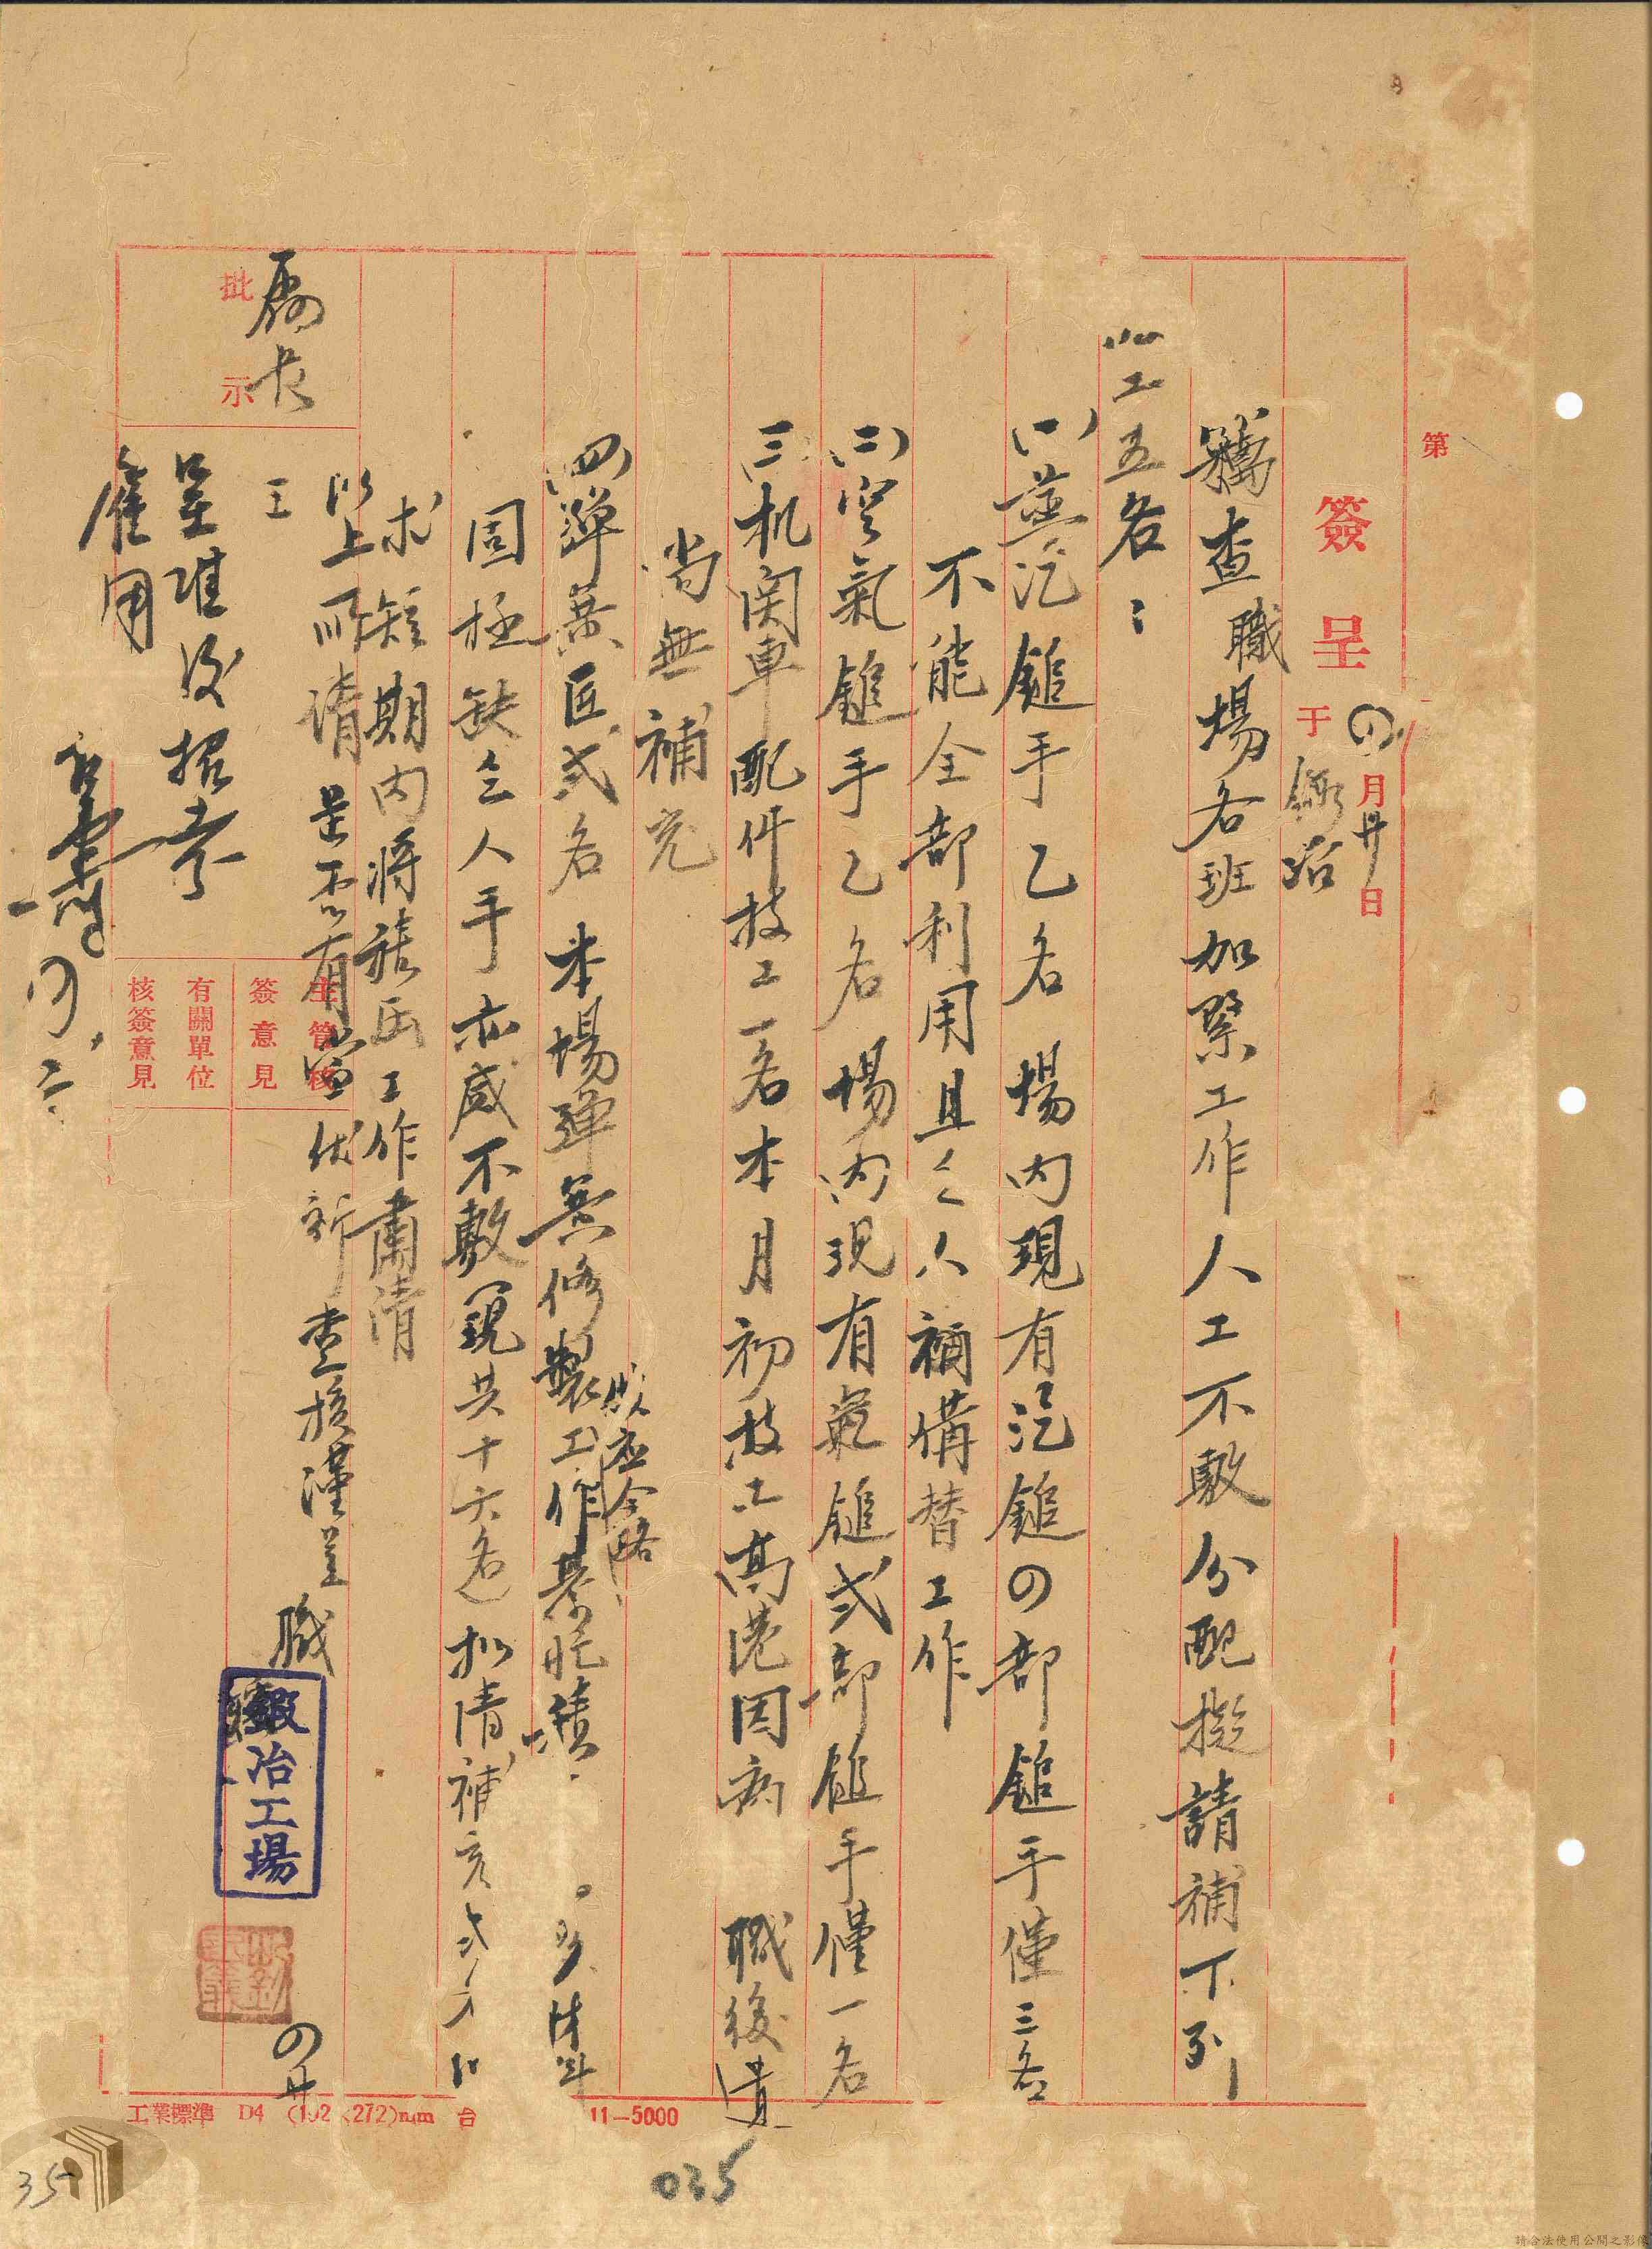 第
簽呈
の月廿日
于鍛冶
竊查職場各班加緊工作人工不敷分配擬請補下列
工五名：
(一)蒸汽鎚手乙名 場內現有汽鎚の部鎚手僅三名
不能全部利用且乏人補備替工作
(二)空氣鎚手乙名 場內現有氣鎚弍部鎚手僅一名
(三)机関車配件技工一名本月初技工高港因病 職後遺
尚無補充
(四)彈簧匠弍名 本場彈簧修製工作
供应全路
固極缺乏人手亦感不敷(現共十六名)拟請補充弍名
求短期內將積压工作肅清
以上所請是否有當伏祈 查核謹呈
王
廠長
職
鍛冶工場
の廿
呈准後招考
雇用
の.二.
批示
主管核
簽意見
有關單位
核簽意見
工業標準 D4 (192×272)mm 台
11—5000
035
35
請合法使用公開之影像